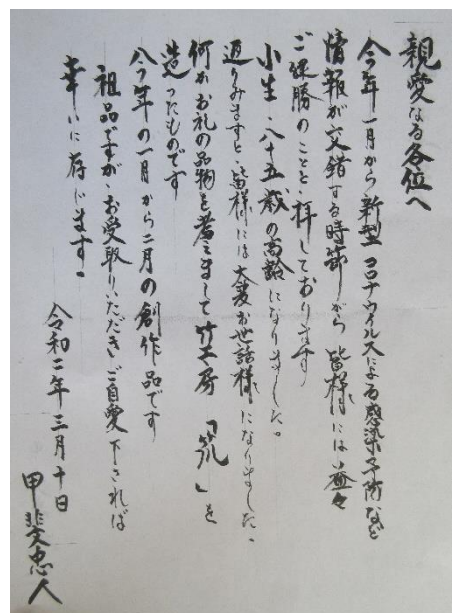 親愛なる各位へ
今年一月から新型コロナウイルスによる感染予防など
情報が交錯する時節がら皆様には益々
ご健勝のことと拝しております
小生、八十五歳の高齢になりました。
返りみますと、皆様には大変お世話様になりました。
何かお礼の品物を考えまして竹工房「筑」を
造ったものです
今年の一月から二月の創作品です
祖品ですが、お受取りいただきご自愛下されば
幸いに存じます。
令和二年三月十日
甲斐忠人